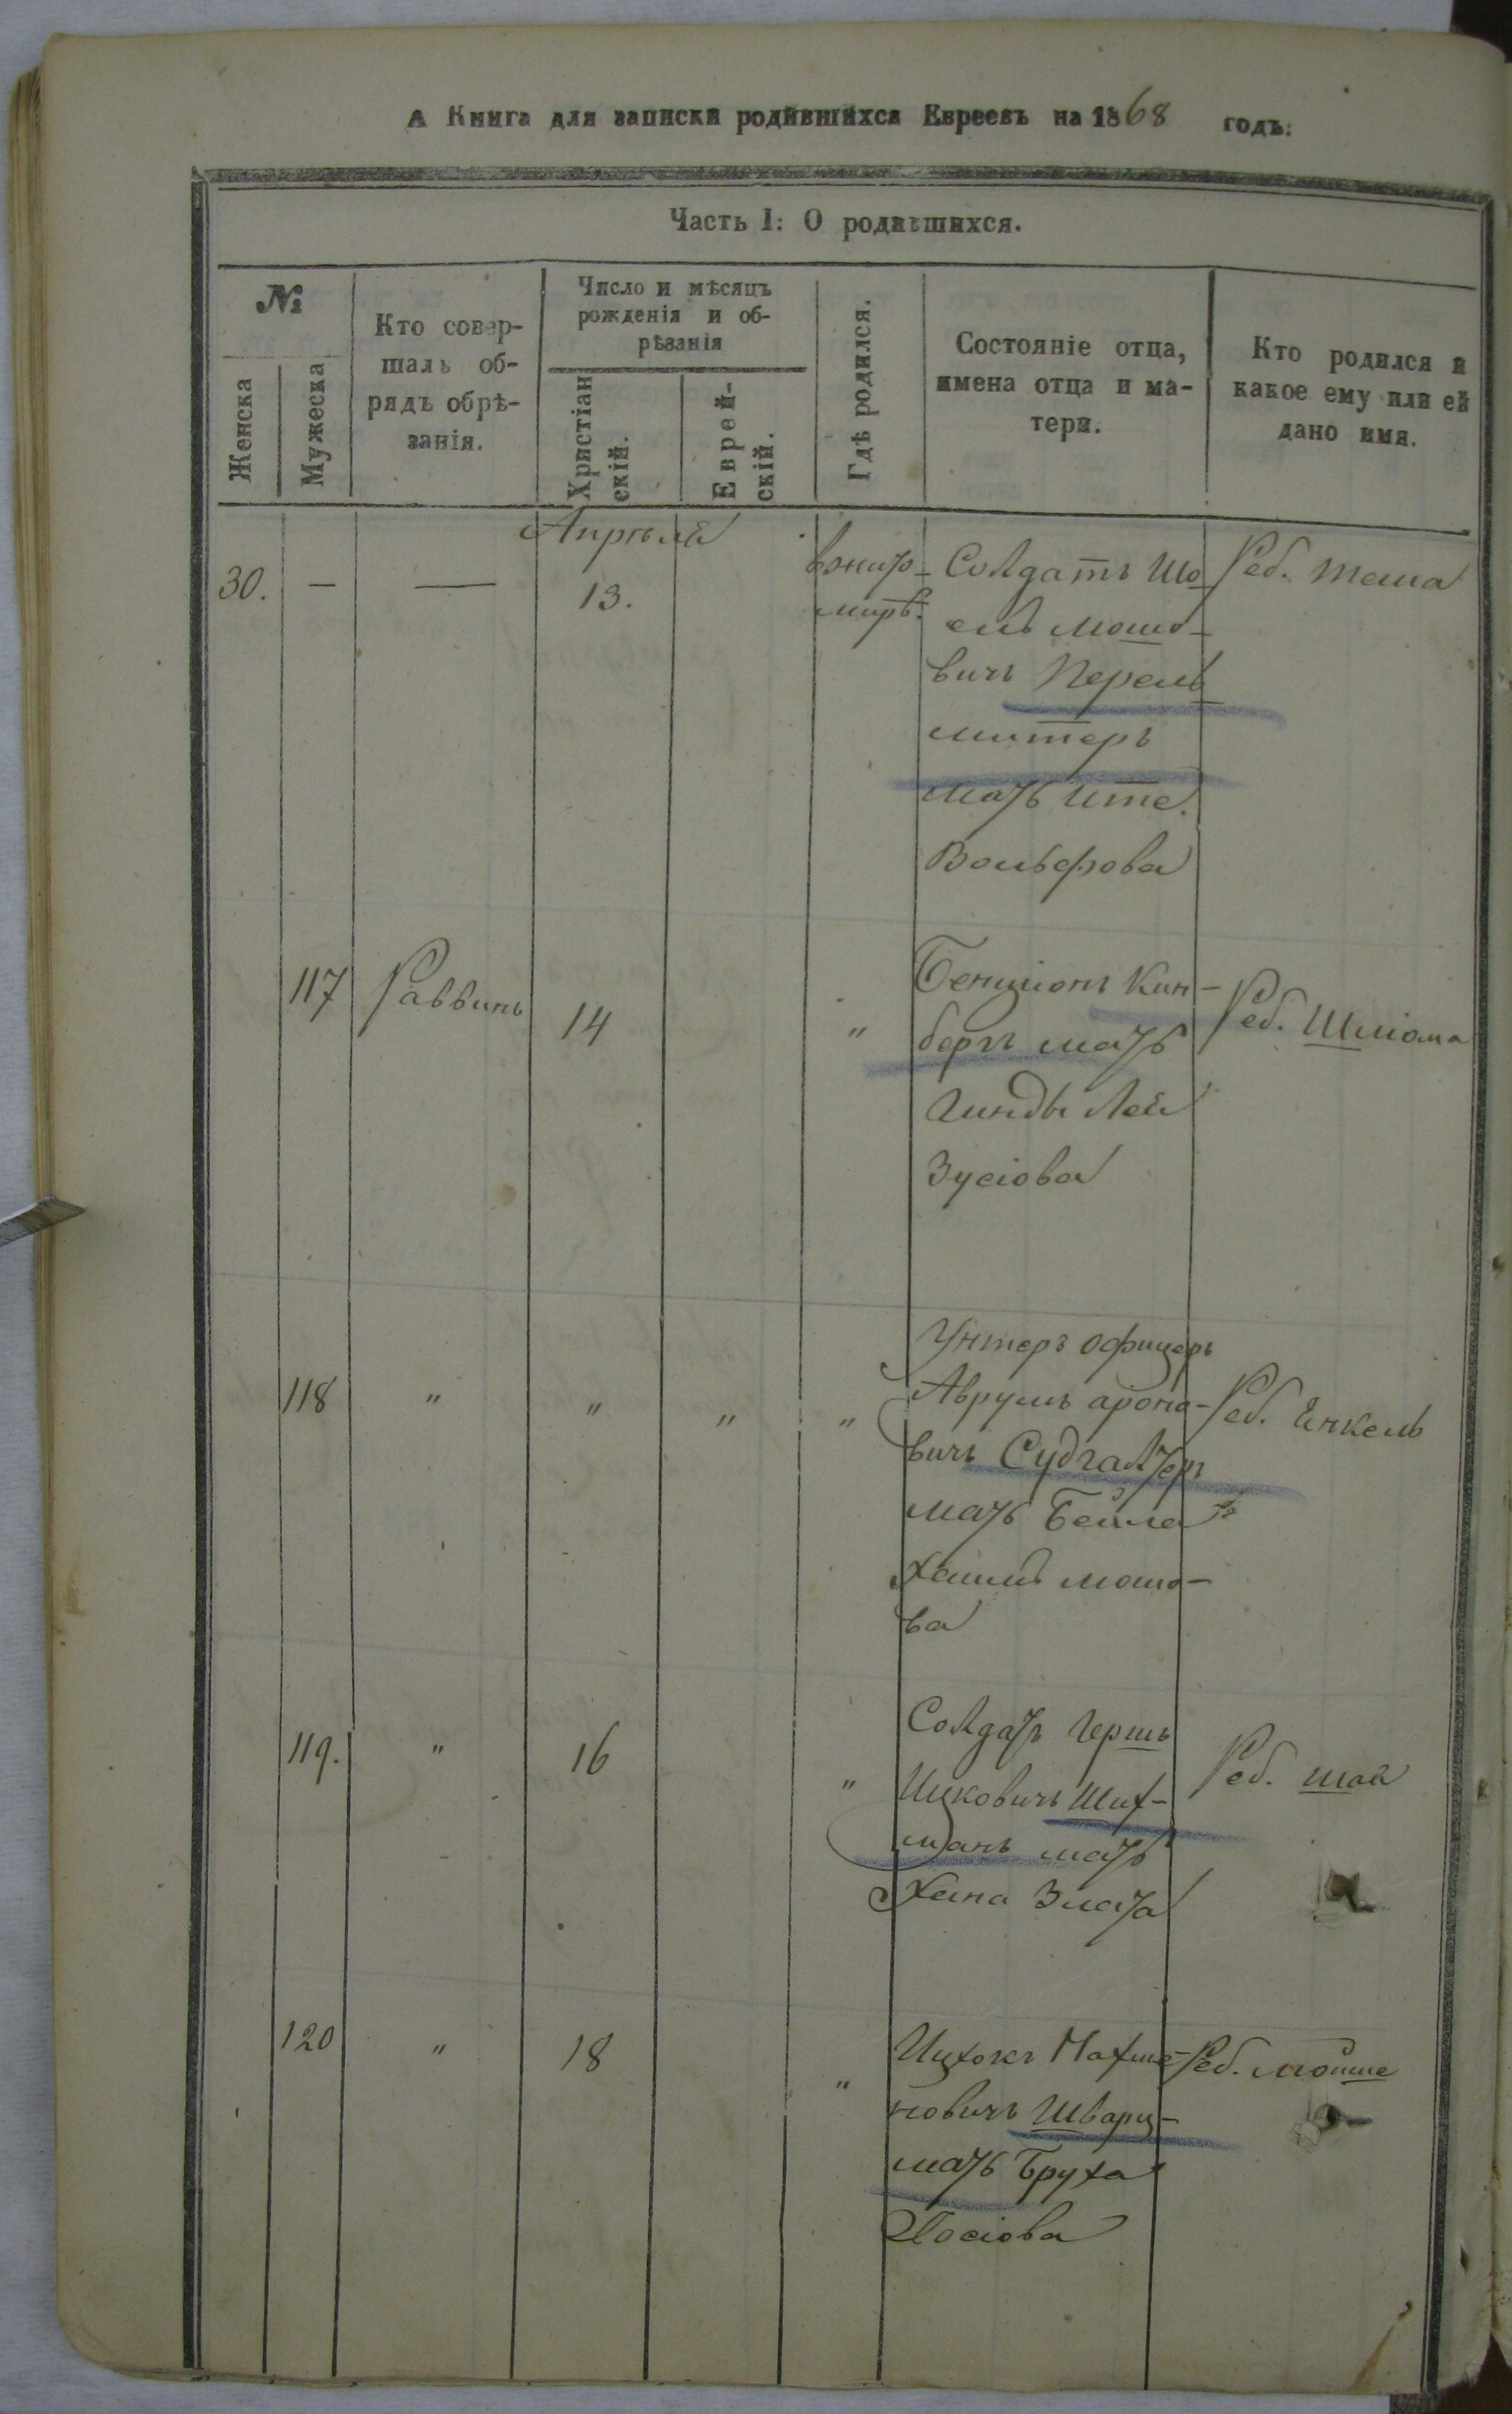 А Книга для записки родившихся Евреевъ на 1868 годъ.
Часть 1: О родившихся.
№
Женска
Мужеска
Кто совер-
шалъ об-
рядъ обрѣ-
занія.
Число и мѣсяцъ
рожденія и об-
рѣзанія
Христіан
скій.
Еврей-
скій.
Гдѣ родился.
Состояніе отца,
имена отца и ма-
тери.
Кто родился и
какое ему или ей
дано имя.
Апрѣля
30. — — 13.
Солдатъ Шо
ель Мошо-
вичъ Перель
митеръ
мать Ите
Вольфова
Реб. Теша
117 Раввинъ 14 "
Бенціонъ Кин-
бергъ мать
Гинды Лея
Зусіова
Реб. Шліома
118 " " " "
Унтеръ офицеръ
Аврумъ Ароно-
вичъ Судгалтеръ
мать Бейла
Мошо-
ва
Реб. Енкель
119. " 16 "
Солдатъ Гершъ
Ицковичъ Шиф-
манъ мать
Хана Злата
Реб. Шая
120 " 18 "
Ицхокъ
новичъ Шварц-
мать Бруха
Иосіова
Реб. Мойше